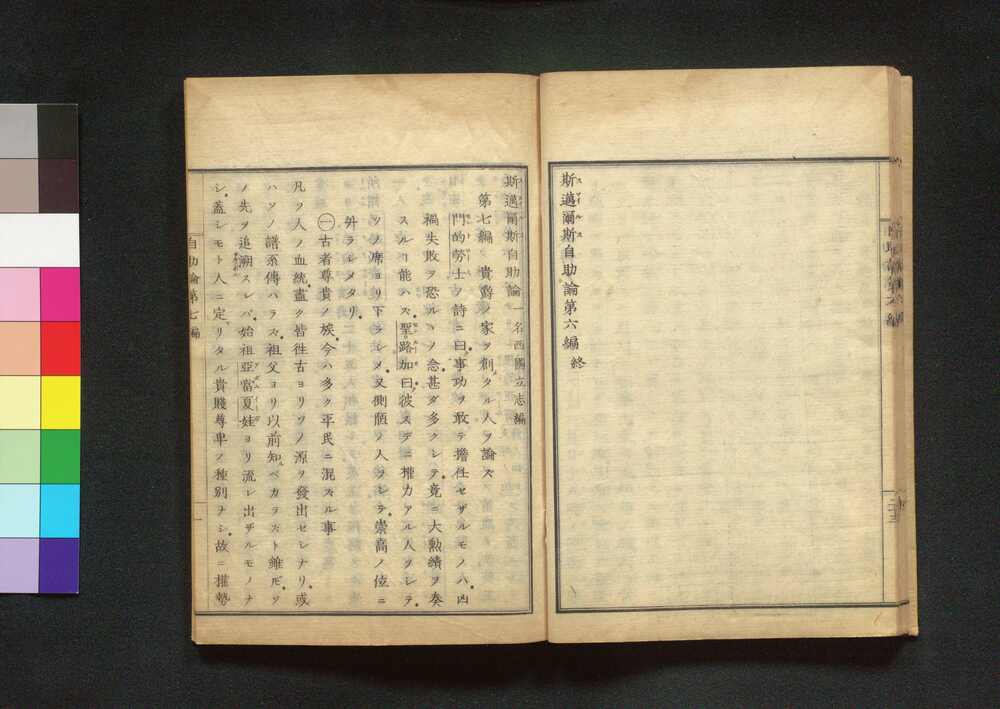 斯邁爾斯自助論第六編 終
斯邁爾斯自助論 一名西國立志編
第七編 貴爵ノ家ヲ創メタル人ヲ論ズ
門的勞士ノ詩ニ曰事功ヲ敢テ擔任セザルモノハ凶
禍失敗ヲ恐ルヽノ念甚ダ多クシテ竟ニ大勲績ヲ奏
スルヿ能ハズ聖路加曰彼スデニ權力アル人ヲシテ
ソノ席ヨリ下ラシメ又側陋ノ人ヲシテ崇高ノ位ニ
升ラシメタリ
㊀古者尊貴ノ族今ハ多ク平民ニ混ズル事
凡ソ人ノ血統盡ク皆徃古ヨリソノ源ヲ發出セシナリ或
ハソノ譜系傳ハラズ祖父ヨリ以前知ベカラズト雖𪜈ソ
ノ先ヲ追溯スレバ始祖亞當夏娃ヨリ流レ出ザルモノナ
シ蓋シモト人ニ定リタル貴賤尊卑ノ種別ナシ故ニ權勢
自助論第七編
一